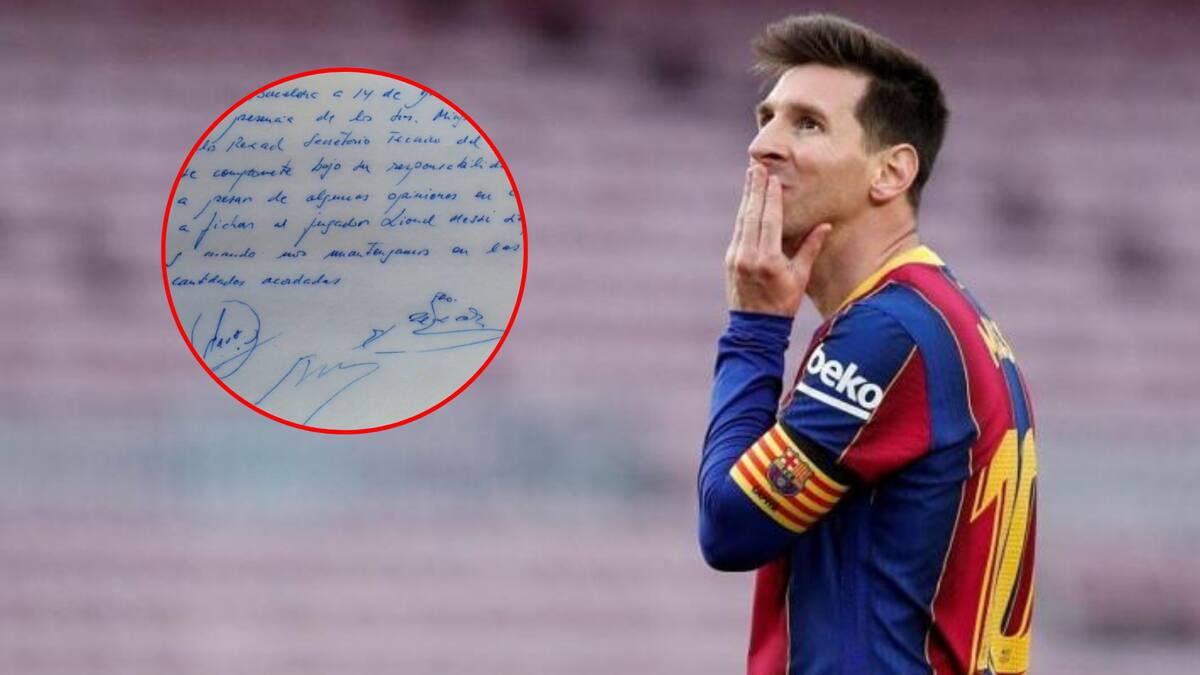 Barcelona a 14 de
presencia de los Srs. Ming
lo Rexach Secretario Tecnico del
se compromete bajo su responsabilida
a pesar de algunas opiniones en c
a fichar al jugador Lionel Messi
y cuando nos mantengamos en las
cantidades acordadas
beko
10